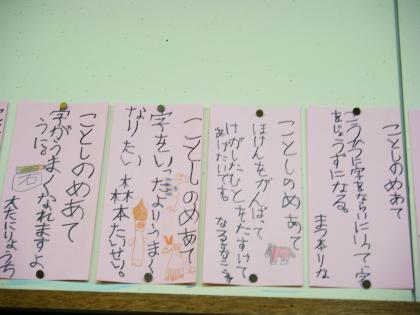 ことしのめあて
字をならいにいって字
をじょうずになる。
まつ本りな
ことしのめあて
ほけんをがんばって
けがしたひとをたすけて
あげたいです。
ことしのめあて
字をいまよりうまく
なりたい 森本たいせい。
ことしのめあて
字がうまくなれますよ
うに。